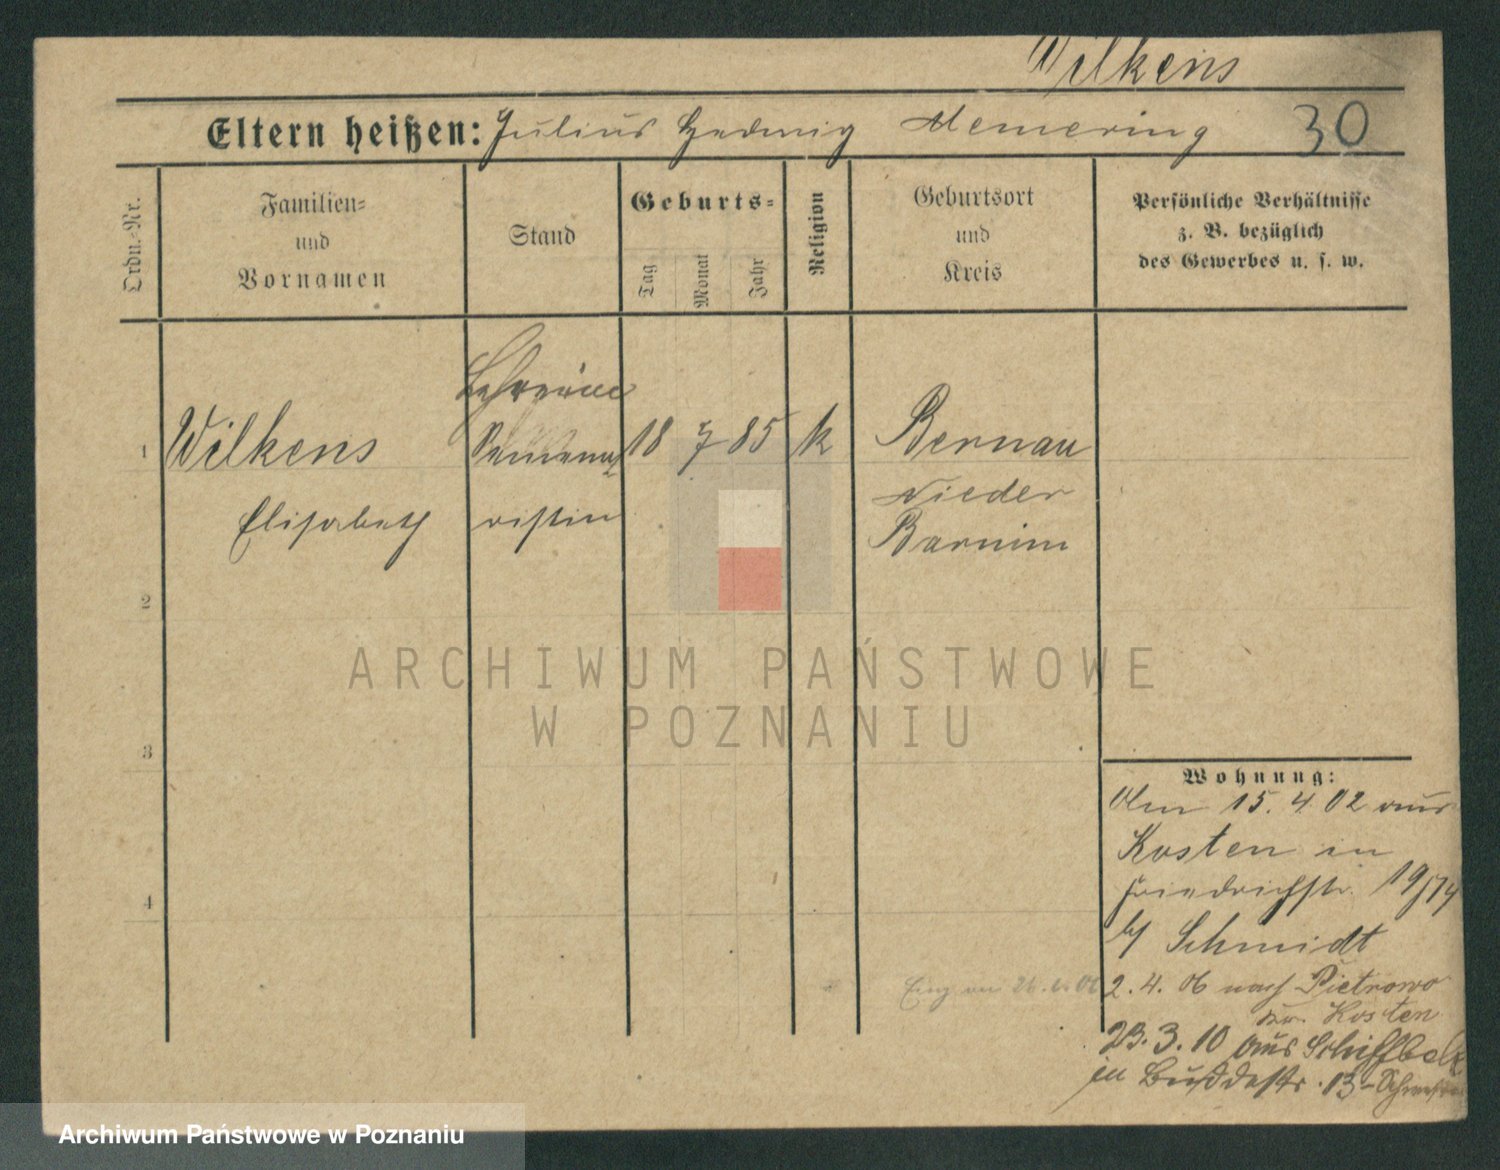 Wilkens
Eltern heißen: Julius Hedwig Memering 30
Ordn.-Nr.
Familien-
und
Vornamen
Stand
Geburts-
Tag
Monat
Jahr
Religion
Geburtsort
und
Kreis
Persönliche Verhältnisse
z. B. bezüglich
des Gewerbes u. s. w.
Lehrerin
1 Wilkens Seminar 18 7 85 k Bernau
Elisabeth ristin Nieder
Barnim
2
3
4
ARCHIWUM PAŃSTWOWE
W POZNANIU
Wohnung:
15. 4. 02 aus
Kosten in
Friedrichstr. 19/
b/ Schmidt
2. 4. 06 nach Pietrowo
Kr. Kosten
23. 3. 10 aus
in 13
Archiwum Państwowe w Poznaniu